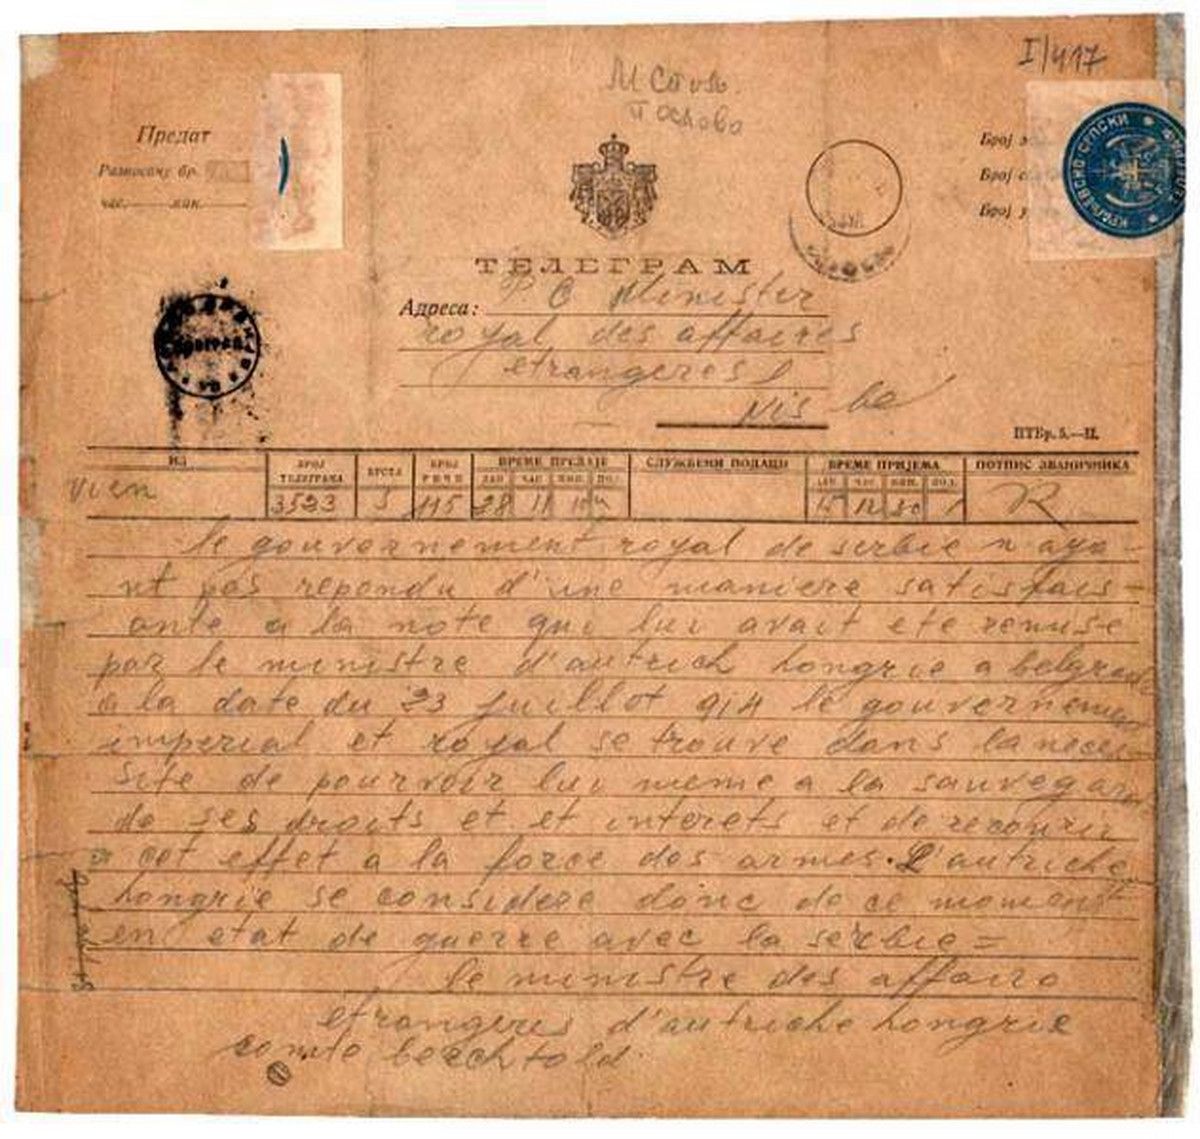 I/417
М Стив.
Послова
Предат
Разносачу бр.
час. мин.
Број
Број
Број
КРАЉЕВСКО СРПСКИ
ТЕЛЕГРАМ
Адреса: P C Minister
royal des affaires
etrangeres
Nis
ПТБр. 5.—II.
ИЗ
БРОЈ ТЕЛЕГРАМА
ВРСТА
БРОЈ РЕЧИ
ВРЕМЕ ПРЕДАЈЕ
СЛУЖБЕНИ ПОДАЦИ
ВРЕМЕ ПРИЈЕМА
ПОТПИС ЗВАНИЧНИКА
ДАН ЧАС МИН. ПОД.
ДАН ЧАС МИН. ПОД.
Vien 3523 5 115 28 11 10 15 12 30 R
le gouvernement royal de serbie n aya-
nt pas rependu d'une maniere satisfais-
ante a la note qui lui avait ete remise
par le ministre d'autrich hongrie a belgrade
a la date du 23 juillot 914 le gouvernement
imperial et royal se trouve dans la neces-
site de pourvoir lui meme a la sauvegar
de ses droits et et interets et de recourir
a cet effet a la force des armes. L'autriche
hongrie se considere donc de ce moment
en etat de guerre avec la serbie =
le ministre des affairo
etrangeres d'autriche hongrie
comte berchtold.